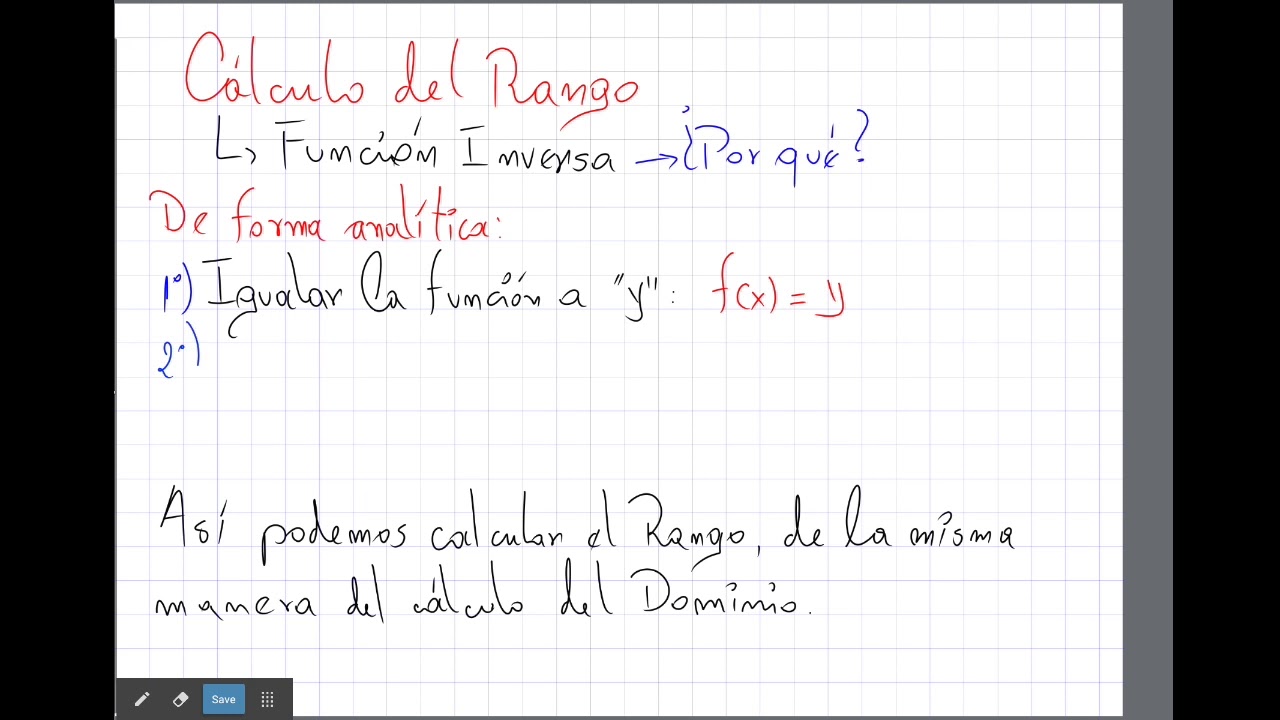 Cálculo del Rango
↳ Función Inversa → ¿Por qué?
De forma analítica:
1º) Igualar la función a "y": f(x) = y
2º)
Así podemos calcular el Rango, de la misma
manera del cálculo del Dominio.
Save